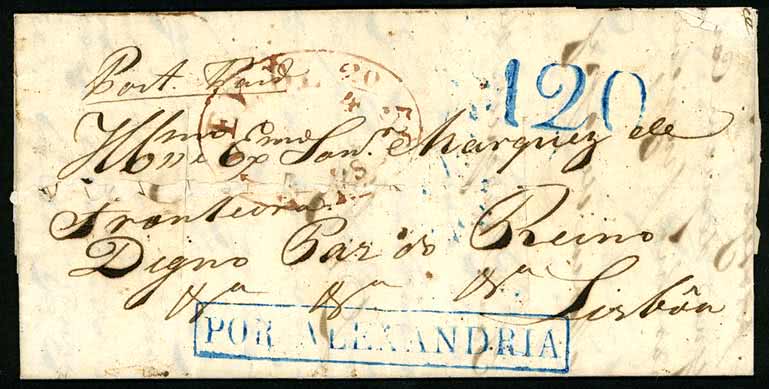 Post Paid
120
Illmo e Exmo Snr. Marquez de
Fronteira
Digno Par do Reino
&a &a &a
Lisbôa
POR ALEXANDRIA